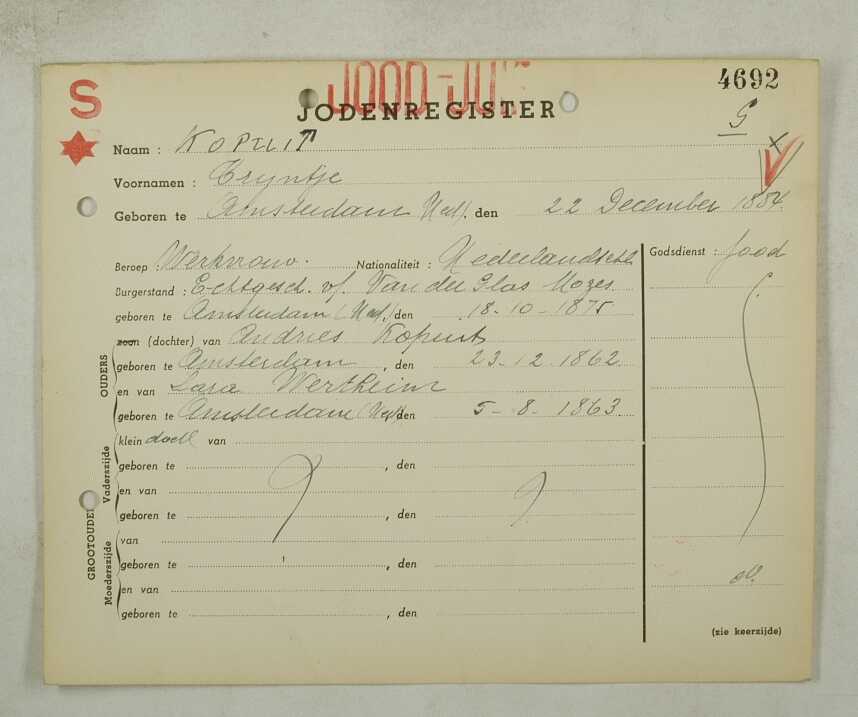 JOOD-JUI
4692
S
JODENREGISTER
G
Naam : KOPUIT
Voornamen : Tryntje
Geboren te Amsterdam (Ned). den 22 December 1884.
Beroep : Werkvrouw. Nationaliteit : Nederlandsche Godsdienst : Jood
Burgerstand : Echtgesch. v/. Van der Glas Mozes
geboren te Amsterdam (Ned), den 18-10-1875
zoon (dochter) van Andries Kopuit
OUDERS
geboren te Amsterdam , den 23-12-1862.
en van Sara Wertheim
geboren te Amsterdam (Ned) den 5-8-1863.
klein docht van
GROOTOUDE
Vaderszijde
geboren te , den
en van
geboren te ? , den ?
Moederszijde
van
geboren te , den
en van
geboren te , den
(zie keerzijde)